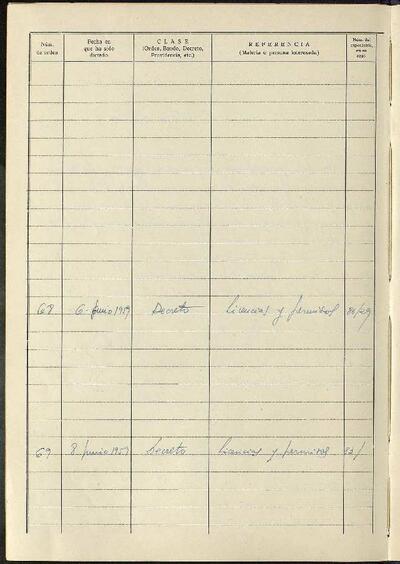 Núm. de orden
Fecha en que ha sido dictado
CLASE (Orden, Bando, Decreto, Providencia, etc.)
REFERENCIA (Materia o persona interesada)
Núm. del expediente, en su caso
68 6 Junio 1959 Decreto Licencias y permisos
69 8 junio 1959 Decreto Licencias y permisos